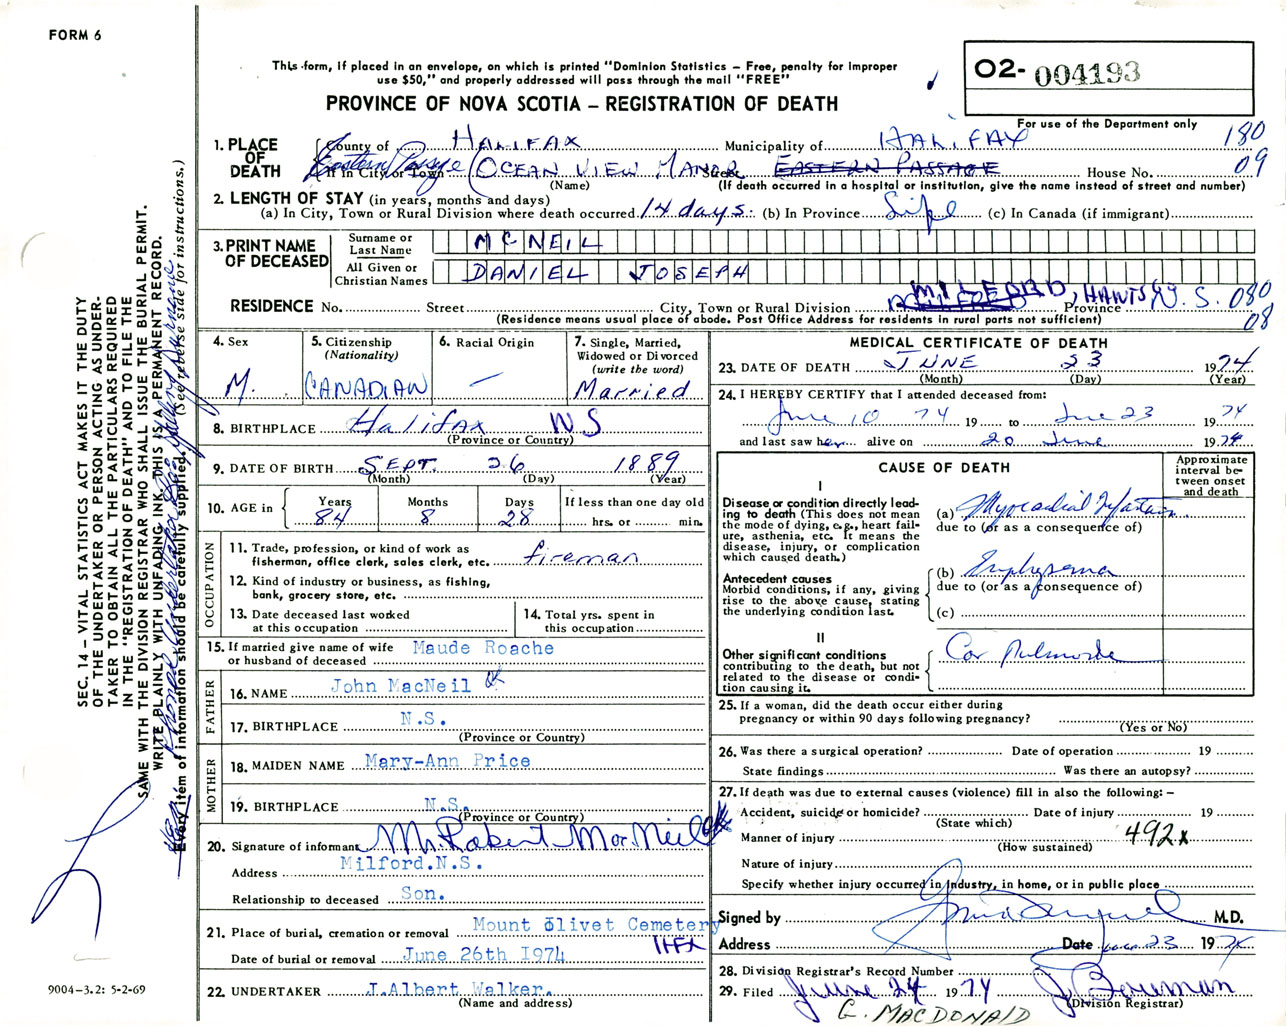 FORM 6
This form, if placed in an envelope, on which is printed "Dominion Statistics – Free, penalty for improper
use $50," and properly addressed will pass through the mail "FREE"
PROVINCE OF NOVA SCOTIA – REGISTRATION OF DEATH
O2- 004193
For use of the Department only
1. PLACE OF DEATH
County of HALIFAX Municipality of HALIFAX 180
Eastern Passage (If in City or Town (OCEAN VIEW MANOR Street EASTERN PASSAGE House No. 09
(Name) (If death occurred in a hospital or institution, give the name instead of street and number)
2. LENGTH OF STAY (in years, months and days)
(a) In City, Town or Rural Division where death occurred 14 days (b) In Province Life (c) In Canada (if immigrant)
3. PRINT NAME OF DECEASED
Surname or Last Name MCNEIL
All Given or Christian Names DANIEL JOSEPH
RESIDENCE No. Street City, Town or Rural Division MILFORD, HANTS Province N.S. 080
(Residence means usual place of abode. Post Office Address for residents in rural parts not sufficient) 08
4. Sex M.
5. Citizenship (Nationality) CANADIAN
6. Racial Origin –
7. Single, Married, Widowed or Divorced (write the word) Married
8. BIRTHPLACE Halifax NS
(Province or Country)
9. DATE OF BIRTH SEPT. 26 1889
(Month) (Day) (Year)
10. AGE in Years 84 Months 8 Days 28 If less than one day old hrs. or min.
OCCUPATION
11. Trade, profession, or kind of work as
fisherman, office clerk, sales clerk, etc. fireman
12. Kind of industry or business, as fishing,
bank, grocery store, etc.
13. Date deceased last worked
at this occupation
14. Total yrs. spent in
this occupation
15. If married give name of wife Maude Roache
or husband of deceased
FATHER
16. NAME John MacNeil OK
17. BIRTHPLACE N.S.
(Province or Country)
MOTHER
18. MAIDEN NAME Mary-Ann Price
19. BIRTHPLACE N.S.
(Province or Country)
20. Signature of informant Mr. Robert MacNeil
Address Milford.N.S.
Relationship to deceased Son.
21. Place of burial, cremation or removal Mount Olivet Cemetery
HFX
Date of burial or removal June 26th 1974
22. UNDERTAKER J.Albert Walker.
(Name and address)
MEDICAL CERTIFICATE OF DEATH
23. DATE OF DEATH JUNE 23 1974
(Month) (Day) (Year)
24. I HEREBY CERTIFY that I attended deceased from:
June 10 74 19 to June 23 74
and last saw her alive on 20 June 1974
CAUSE OF DEATH
Approximate interval between onset and death
I
Disease or condition directly lead-
ing to death (This does not mean
the mode of dying, e.g., heart fail-
ure, asthenia, etc. It means the
disease, injury, or complication
which caused death.)
(a) Myocardial Infarction
due to (or as a consequence of)
Antecedent causes
Morbid conditions, if any, giving
rise to the above cause, stating
the underlying condition last.
(b) Emphysema
due to (or as a consequence of)
(c)
II
Other significant conditions
contributing to the death, but not
related to the disease or condi-
tion causing it.
Cor Pulmonale
25. If a woman, did the death occur either during
pregnancy or within 90 days following pregnancy?
(Yes or No)
26. Was there a surgical operation? Date of operation 19
State findings Was there an autopsy?
27. If death was due to external causes (violence) fill in also the following: –
Accident, suicide or homicide? Date of injury 19
(State which)
Manner of injury 492x
(How sustained)
Nature of injury
Specify whether injury occurred in Industry, in home, or in public place
Signed by M.D.
Address Date June 23 1974
28. Division Registrar's Record Number
29. Filed June 24 1974 J. Bowman
(Division Registrar)
G. MACDONALD
SEC. 14 – VITAL STATISTICS ACT MAKES IT THE DUTY
OF THE UNDERTAKER OR PERSON ACTING AS UNDER-
TAKER TO OBTAIN ALL THE PARTICULARS REQUIRED
IN THE "REGISTRATION OF DEATH" AND TO FILE THE
SAME WITH THE DIVISION REGISTRAR WHO SHALL ISSUE THE BURIAL PERMIT.
WRITE PLAINLY WITH UNFADING INK. THIS IS A PERMANENT RECORD.
Every item of information should be carefully supplied. (See reverse side for instructions.)
9004–3.2: 5-2-69